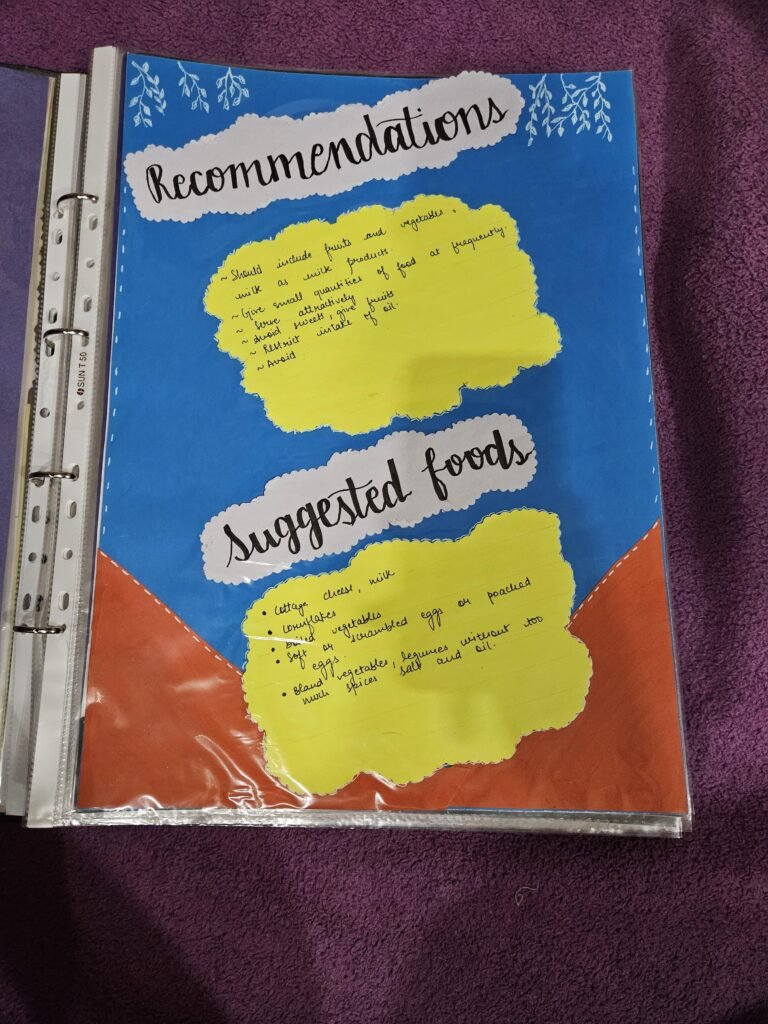 Recommendations
~ Should include fruits and vegetables,
milk as milk products.
~ Give small quantities of food at frequently.
~ Serve attractively
~ Avoid sweets, give fruits
~ Restrict intake of oil.
~ Avoid
Suggested foods
• Cottage cheese, milk
• Cornflakes
• Boiled vegetables
• Soft or scrambled eggs or poached
eggs.
• Bland vegetables, legumes without too
much spices salt and oil.
SUN T 50